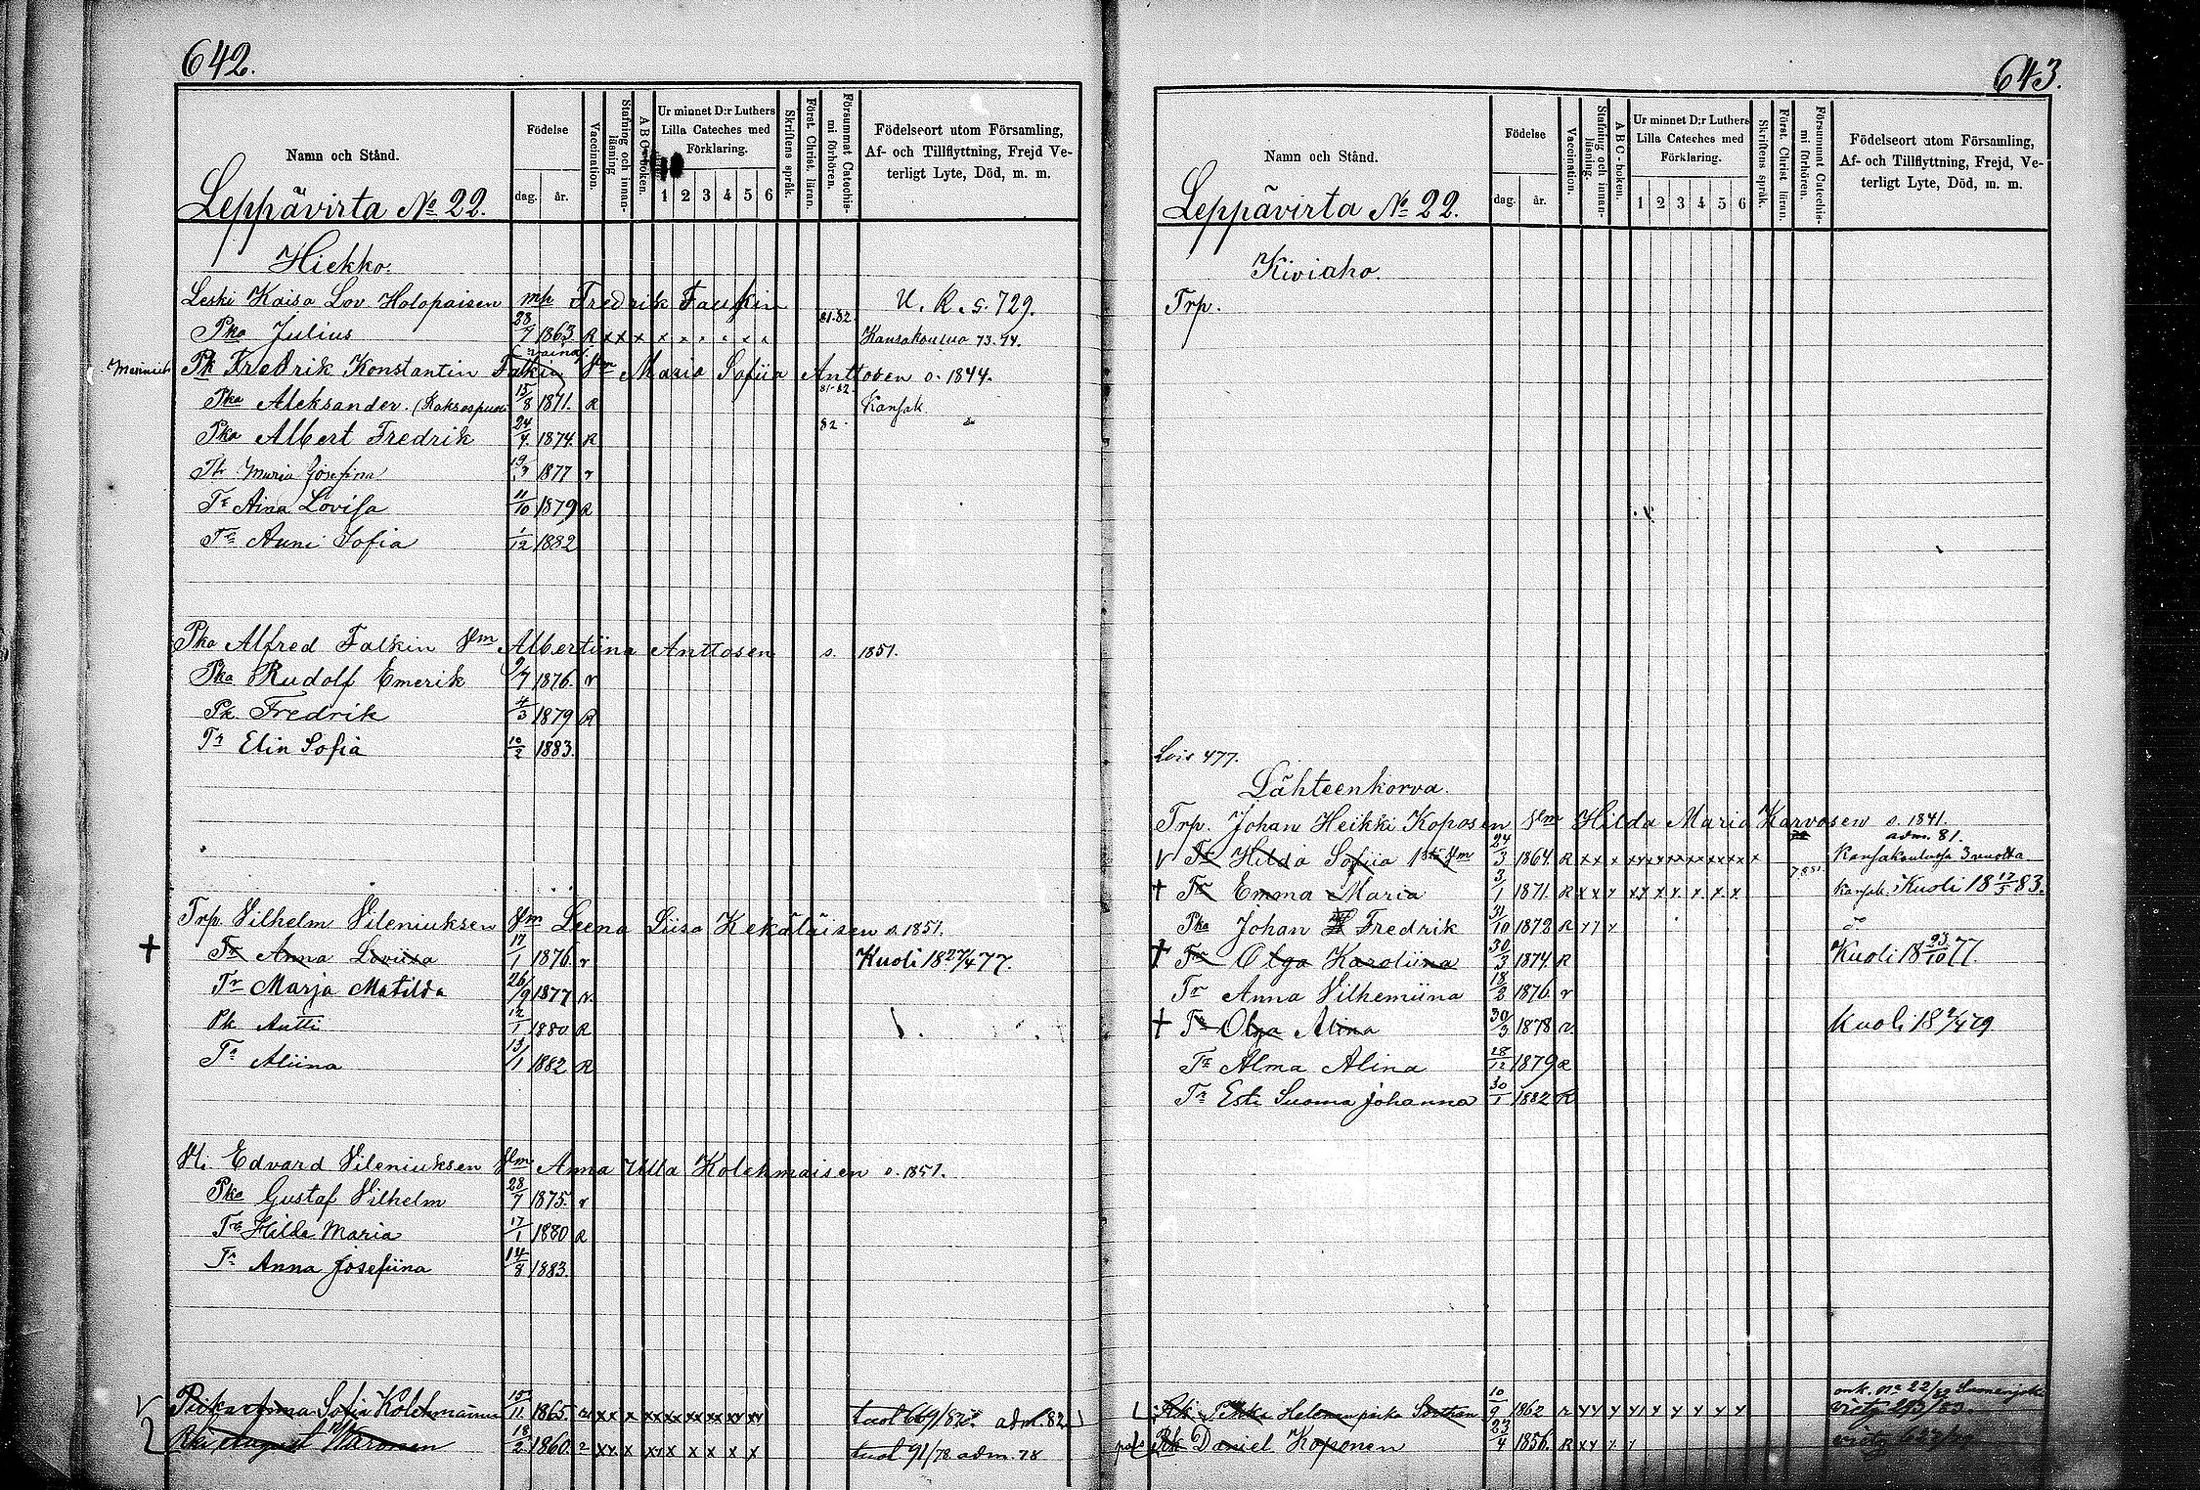 642.
Namn och Stånd.
Födelse
dag.
år.
Vaccination.
Stafning och innan-
läsning
A B C-boken.
Ur minnet D:r Luthers
Lilla Cateches med
Förklaring.
1 2 3 4 5 6
Skriftens språk.
Först. Christ. läran.
Försummat Catechis-
mi förhören.
Födelseort utom Församling,
Af- och Tillflyttning, Frejd Ve-
terligt Lyte, Död, m. m.
Leppävirta No 22.
Hiekko.
Leski Kaisa Lov Holopaisen mp Fredrik Faukin U. K. s. 729.
Pka Julius 28/7 1863. R x x x x x x x x x 81-82. Kansakoulua 73.74.
Pk Fredrik Konstantin Falkin Vm Maria Sofiia Anttosen s. 1844.
Pka Aleksander. 15/8 1871. R 81-82 Kansak.
Pka Albert Fredrik 24/4. 1874. R 82.
Tr Maria Josefina 19/3 1877 r
Tr Aina Lovisa 11/10 1879 R
Tr Auni Sofia 1/12 1882
Pka Alfred Falkin Vm Albertiina Anttosen s. 1851.
Pka Rudolf Emerik 9/7 1876. r
Pk Fredrik 4/3 1879 R
Tr Elin Sofia 10/2 1883.
Trp. Vilhelm Vileniuksen Vm Leena Liisa Kekäläisen s. 1851.
† Tr Anna Loviisa 17/1 1876. r Kuoli 18 27/4 77.
Tr Marja Matilda 26/9 1877 r.
Pk Antti 12/1 1880 R
Tr Aliina 13/1 1882 R
Edvard Vileniuksen Vm Anna Ulla Kolehmaisen s. 1851.
Pka Gustaf Vilhelm 28/7 1875. r
Tr Hilda Maria 17/1 1880 R
Tr Anna Josefiina 14/8 1883.
Piika Anna Sofia Kolehmainen 15/11 1865. xx x xx xx xx xx xx tuol 669/82 adm. 82
Rki August 18/2 1860. xx x xx x x x x x tuol 91/78 adm. 78
643.
Namn och Stånd.
Födelse
dag.
år.
Vaccination.
Stafning och innan-
läsning.
A B C-boken.
Ur minnet D:r Luthers
Lilla Cateches med
Förklaring.
1 2 3 4 5 6
Skriftens språk.
Först. Christ läran.
Försummat Catechis-
mi förhören.
Födelseort utom Församling,
Af- och Tillflyttning, Frejd, Ve-
terligt Lyte, Död, m. m.
Leppävirta No 22.
Kiviaho.
Trp.
Lois 477.
Lähteenkorva.
Trp. Johan Heikki Koposen Vm Hilda Maria Karvosen s. 1841.
Tr Hilda Sofiia 24/3 1864. R x x x x x x x x x x x x adm. 81. Kansakoulussa 3 vuotta
† Tr Emma Maria 3/1 1871. R x x x x x x x x x x Kansak. Kuoli 18 17/5 83.
Pka Johan Fredrik 31/10 1872 R
† Tr Olga Karoliina 30/3 1874. R Kuoli 18 23/10 77.
Tr Anna Vilhemiina 18/2 1876. r
† Tr Olga Alina 30/3 1878 r. Kuoli 18 2/4 79
Tr Alma Alina 28/12 1879 R
Tr Esti Suoma Johanna 30/1 1882 R
Rk Pekka Helonenpoika 10/9 1862 r
Rk Daniel Koponen 23/4 1856. R